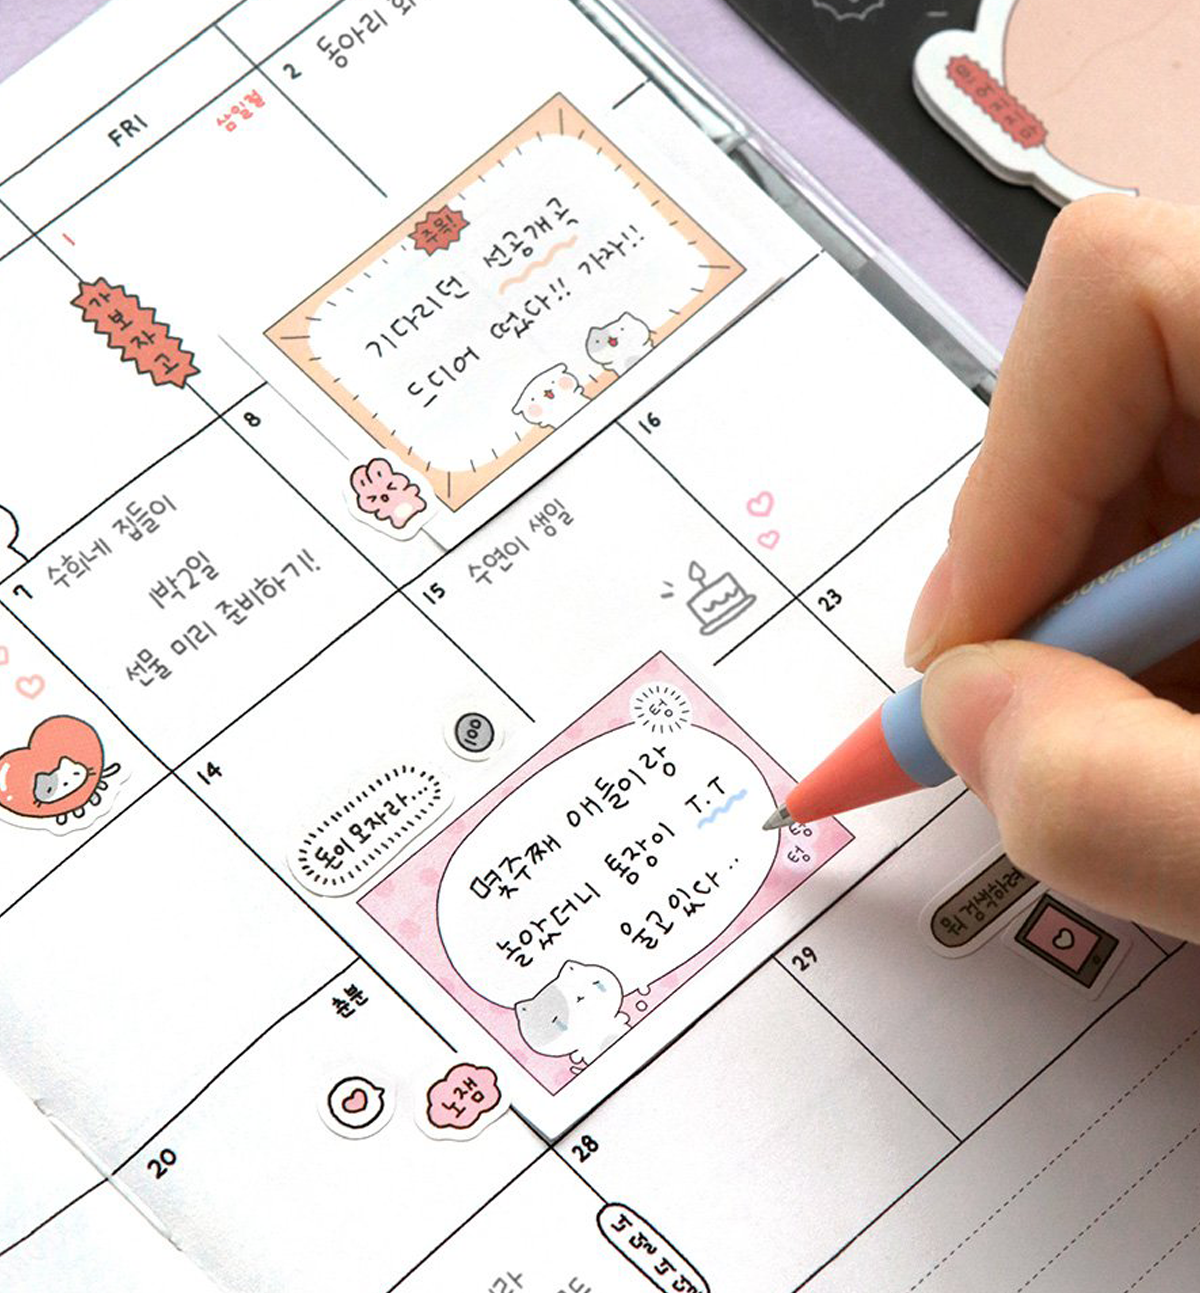 FRI
삼일절
1
2
동아리 회
가보자고
주목!
기다리던 선공개곡
드디어 떴다!! 가자!!
7
수희네 집들이
1박2일
선물 미리 준비하기!
8
14
돈이 모자라...
100
15
수연이 생일
16
텅
몇주째 애들이랑
놀았더니 통장이 T.T
울고 있다..
텅
텅
춘분
노잼
20
23
뭐 검색하려
28
29